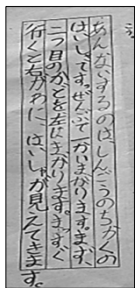 あんないするのは、しんごうのちかくの
はいしゃです。ぜんぶで2かいまがります。まず、
二つ目のかどを左にまがります。まっすぐ
行くと右がわに、はいしゃが見えてきま
す。